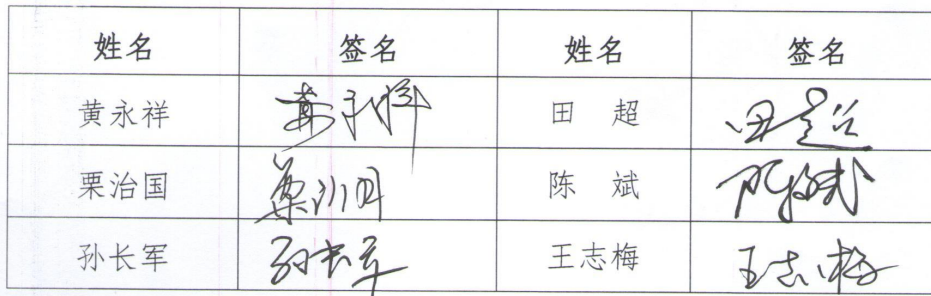 姓名 签名 姓名 签名
黄永祥 黄永祥 田 超 田超
栗治国 栗治国 陈 斌 陈斌
孙长军 孙长军 王志梅 王志梅